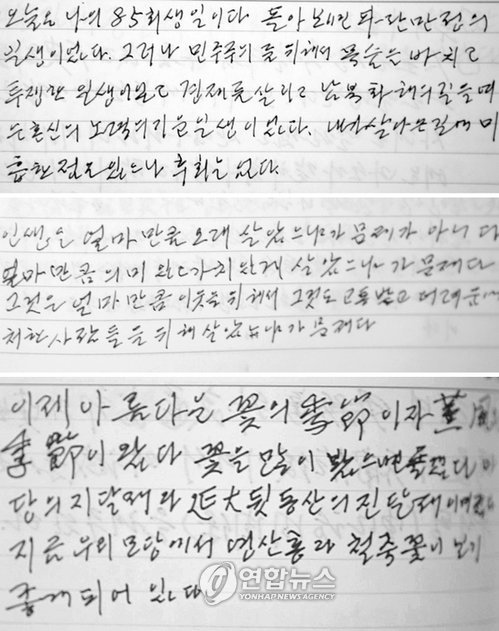 오늘은 나의 85회 생일이다 돌아보면 파란만장의
일생이었다. 그러나 민주주의를 위해서 목숨을 바치고
투쟁한 일생이었고 경제를 살리고 남북 화해의 길을 여
는 혼신의 노력을 기울인 일생이었다. 내가 살아온 길에 미
흡한 점은 있으나 후회는 없다.
인생은 얼마만큼 오래 살았느냐가 문제가 아니다
얼마만큼 의미있고 가치있게 살았느냐가 문제다
그것은 얼마만큼 이웃을 위해서 그것도 고통받고 어려움에
처한 사람들을 위해 살았느냐가 문제다
이제 아름다운 꽃의 季節이자 薰風
季節이 왔다 꽃을 많이 봤으면 좋겠다
당의 진달래와 延大 뒷동산의 진달래
지금 우리 마당에서 영산홍과 철쭉꽃이 보기
좋게 피어 있다.
연합뉴스
YONHAP NEWS AGENCY